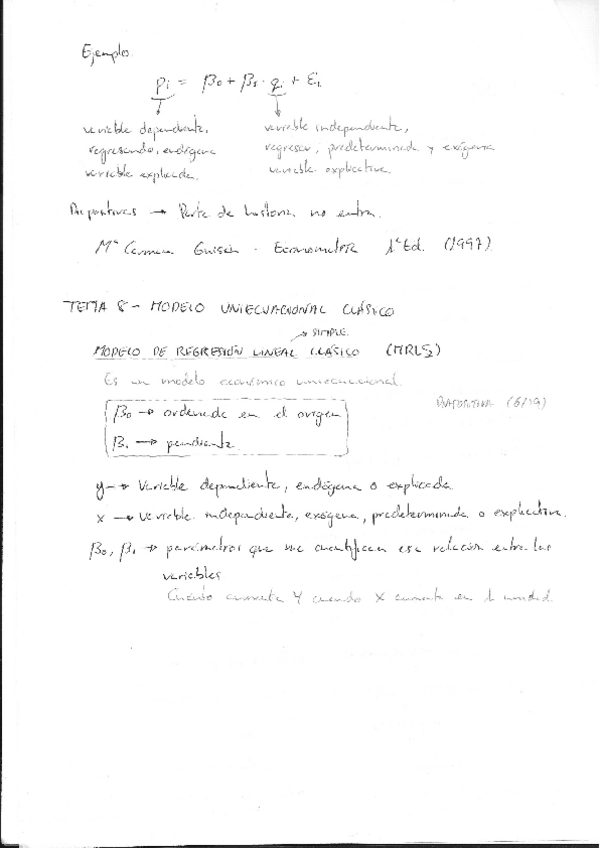 Ejemplo.
pi = β0 + β1 · qi + εi
variable dependiente, variable independiente,
regresando, endógena regresor, predeterminada y exógena
variable explicada. variable explicativa.
Diapositivas → Parte de historia no entra.
Mª Carmen Guisán - Econometría 1ª Ed. (1997)
TEMA 8 - MODELO UNIECUACIONAL CLÁSICO
→ SIMPLE.
MODELO DE REGRESIÓN LINEAL CLÁSICO (MRLS)
Es un modelo económico uniecuacional.
DIAPOSITIVA (6/19)
β0 → ordenada en el origen
β1 → pendiente
y → Variable dependiente, endógena o explicada.
x → Variable independiente, exógena, predeterminada o explicativa.
β0, β1 → parámetros que me cuantifican esa relación entre las
variables
Cuánto aumenta Y cuando X aumenta en 1 unidad.